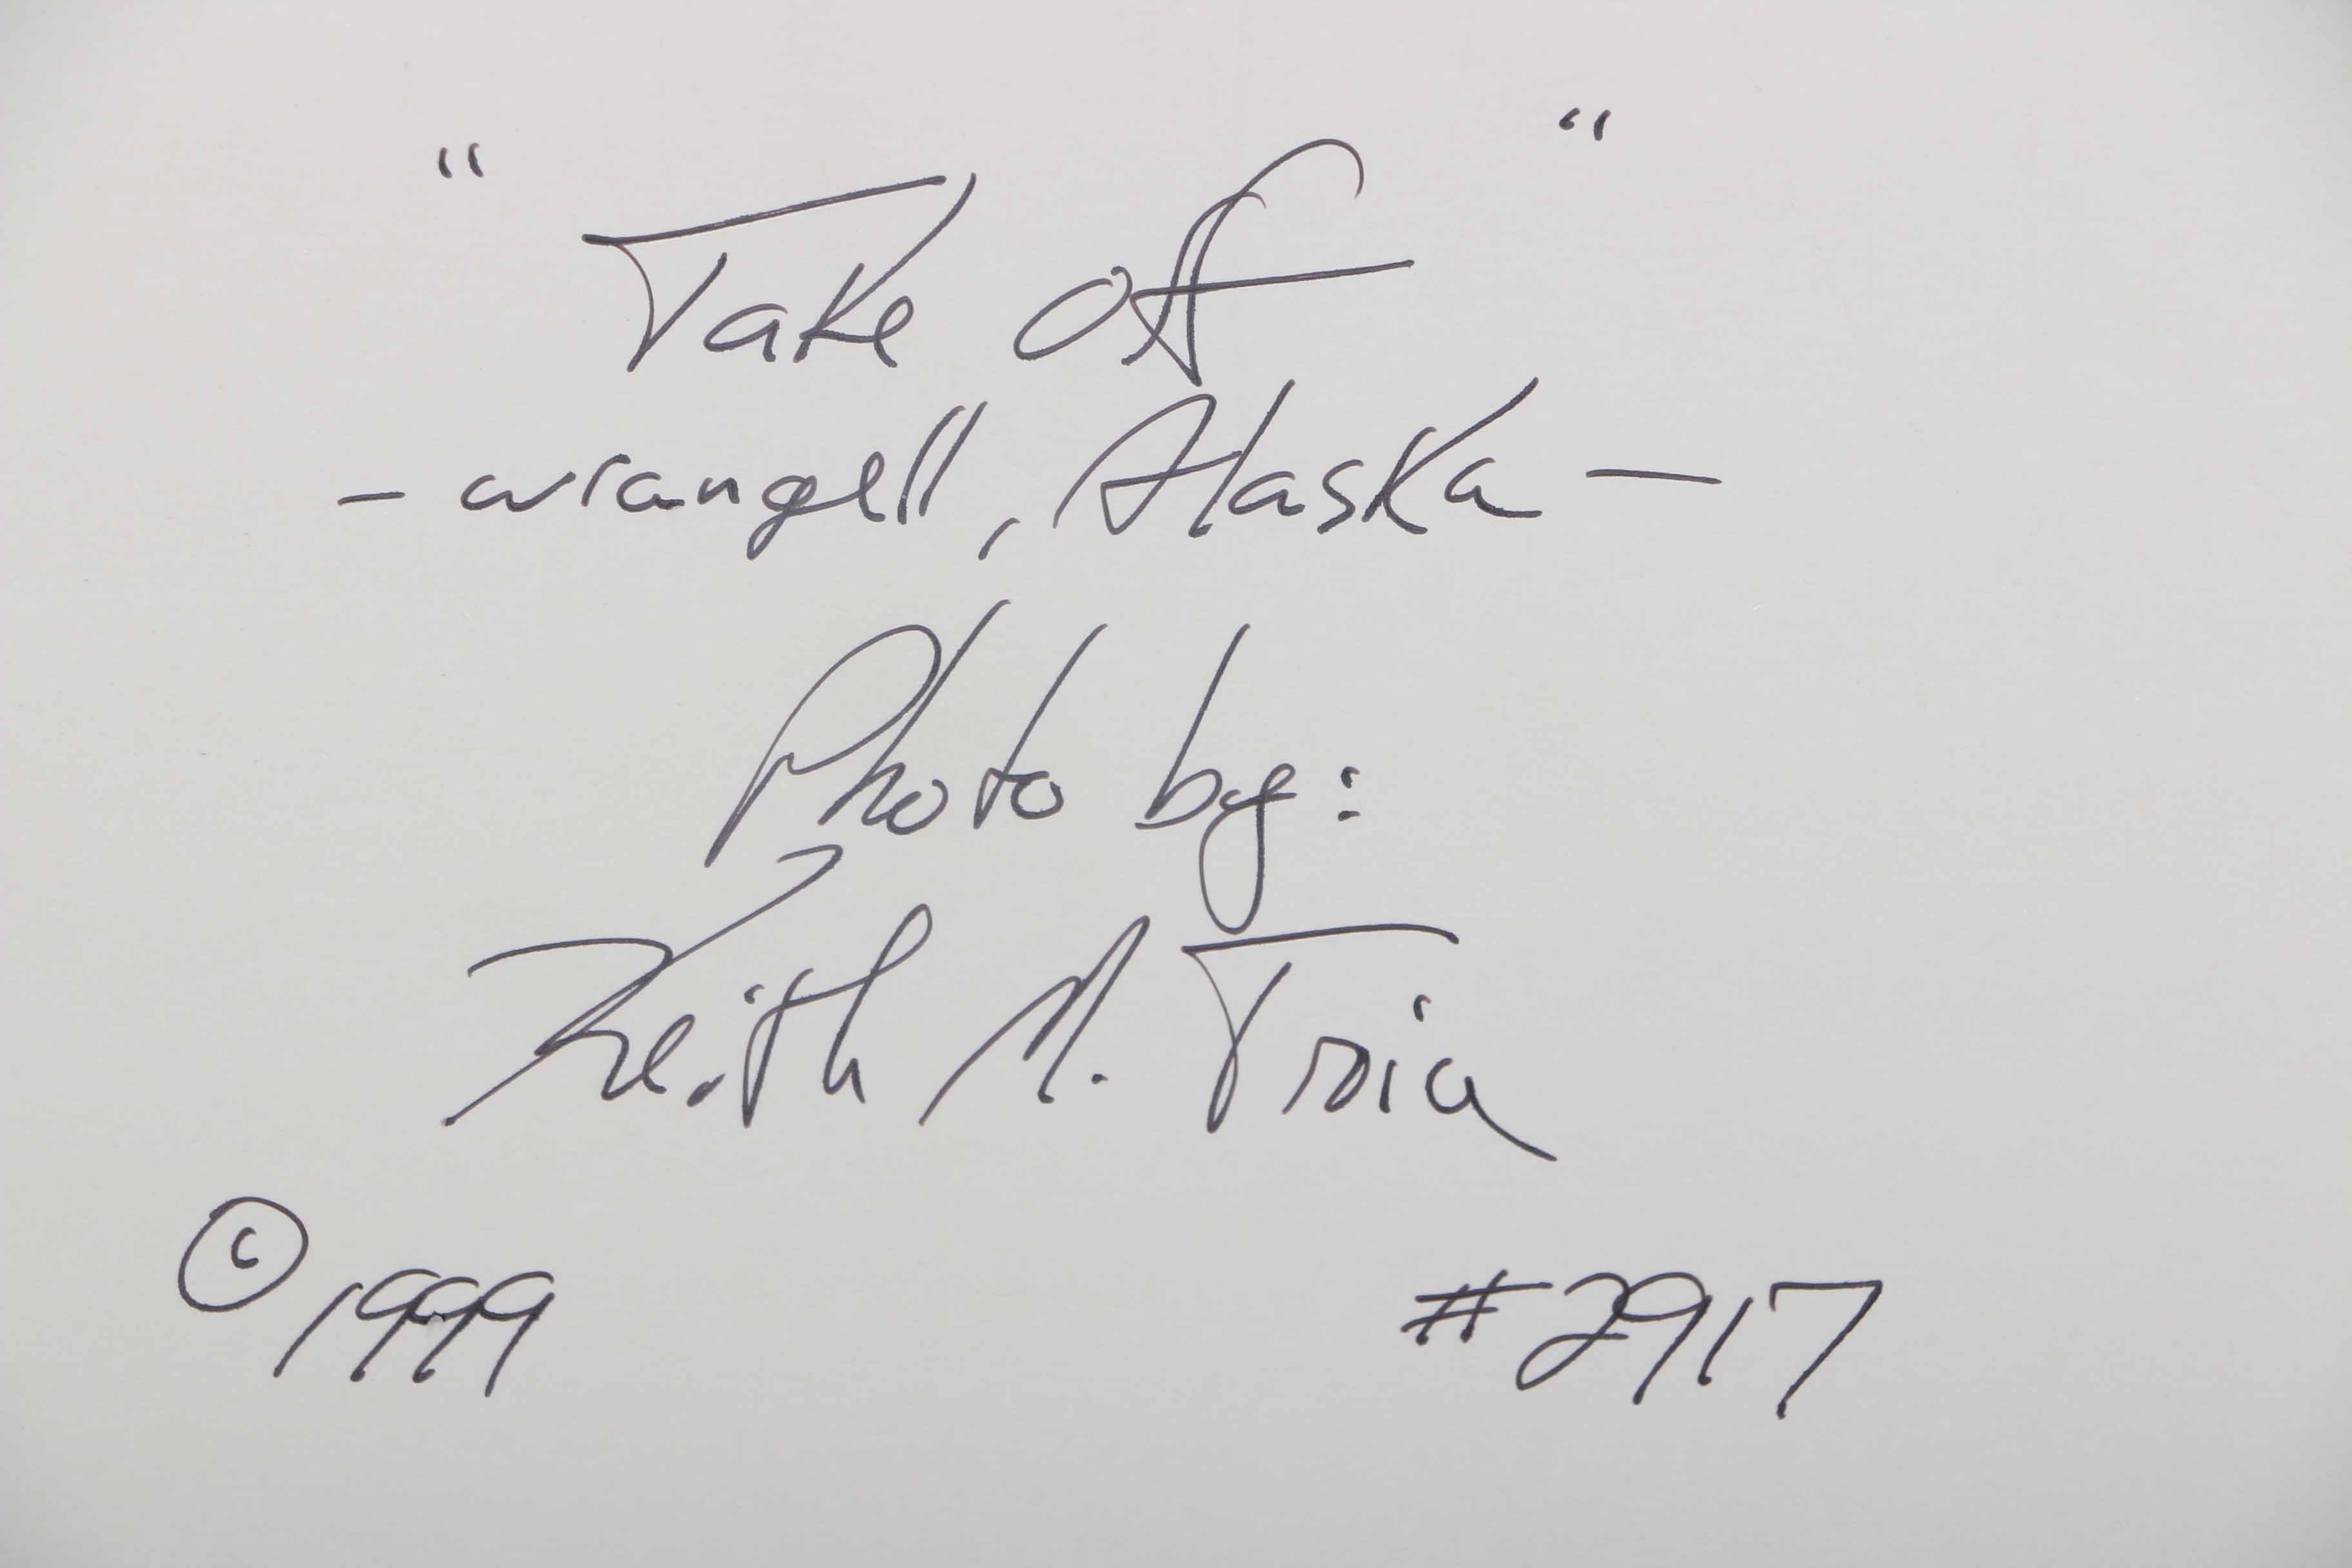 "Take off"
- wrangell, Alaska -
Photo by:
Keith M. Troia
© 1999 #2917